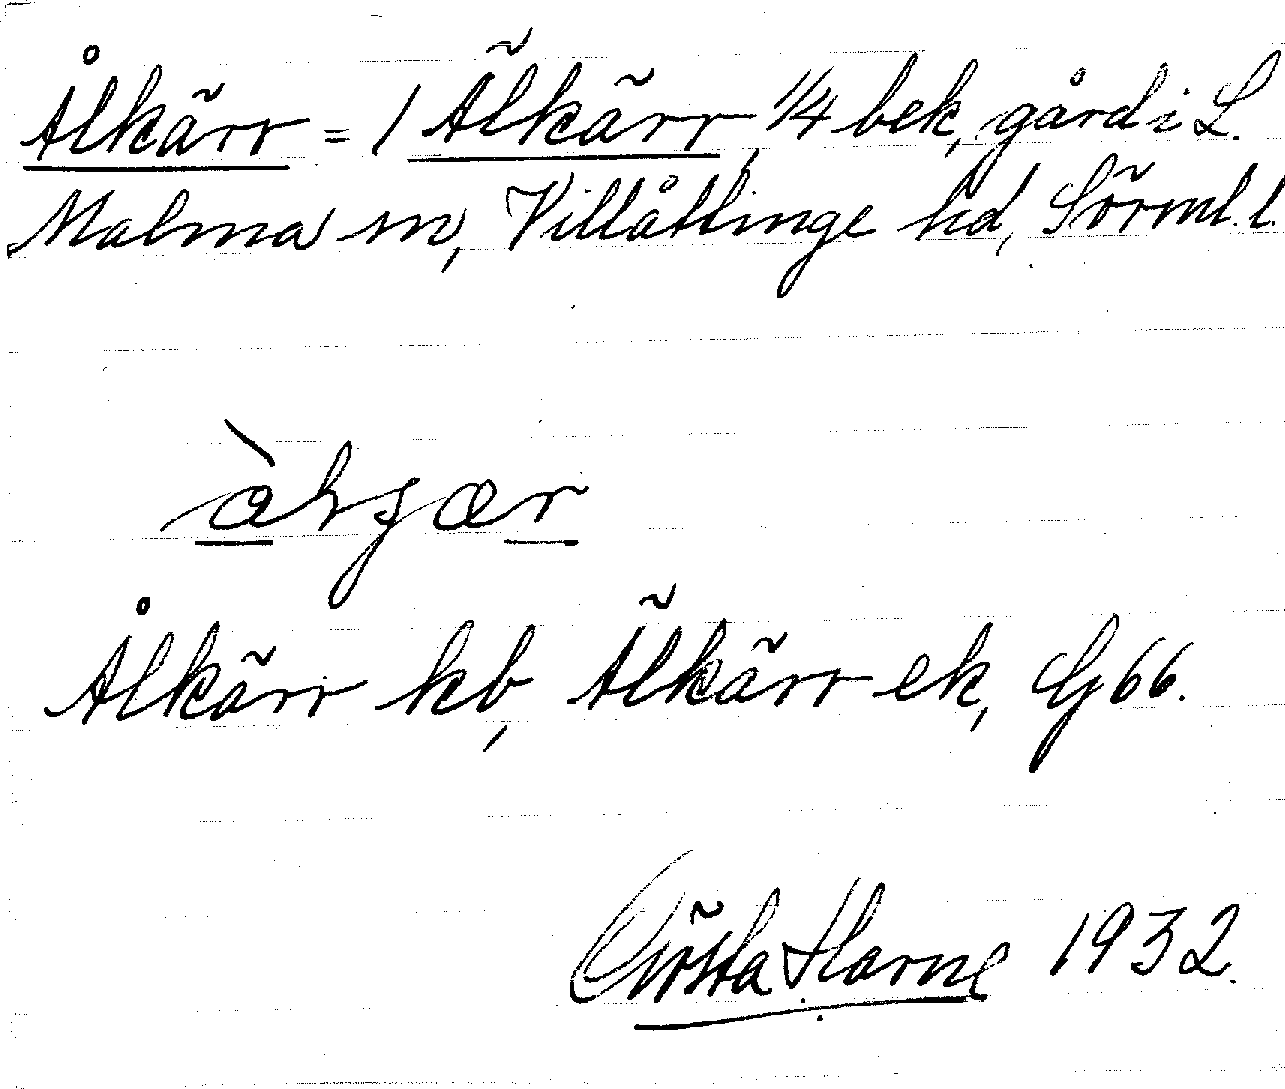 Ålkärr = 1 Älkärr, 1/4 bek, gård i L.
Malma sn, Villåttinge hd, Sörml. l.
Ålkärr kb, Älkärr ek, G 66.
Gösta Harne 1932.